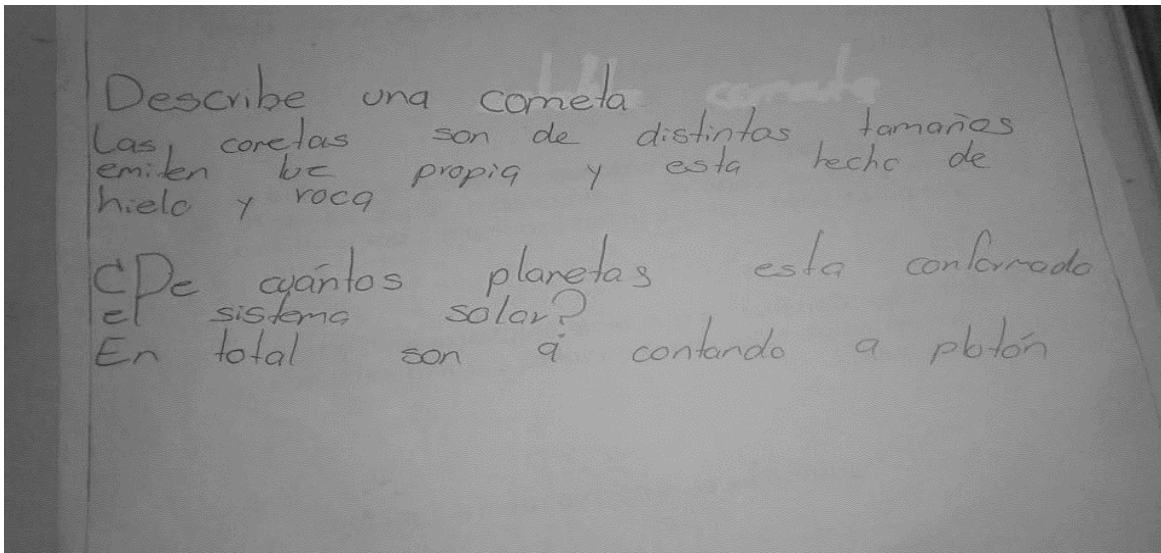 Describe una cometa
Las cometas son de distintos tamaños
emiten luz propia y esta hecho de
hielo y roca
¿De cuántos planetas esta conformado
el sistema solar?
En total son 9 contando a plutón